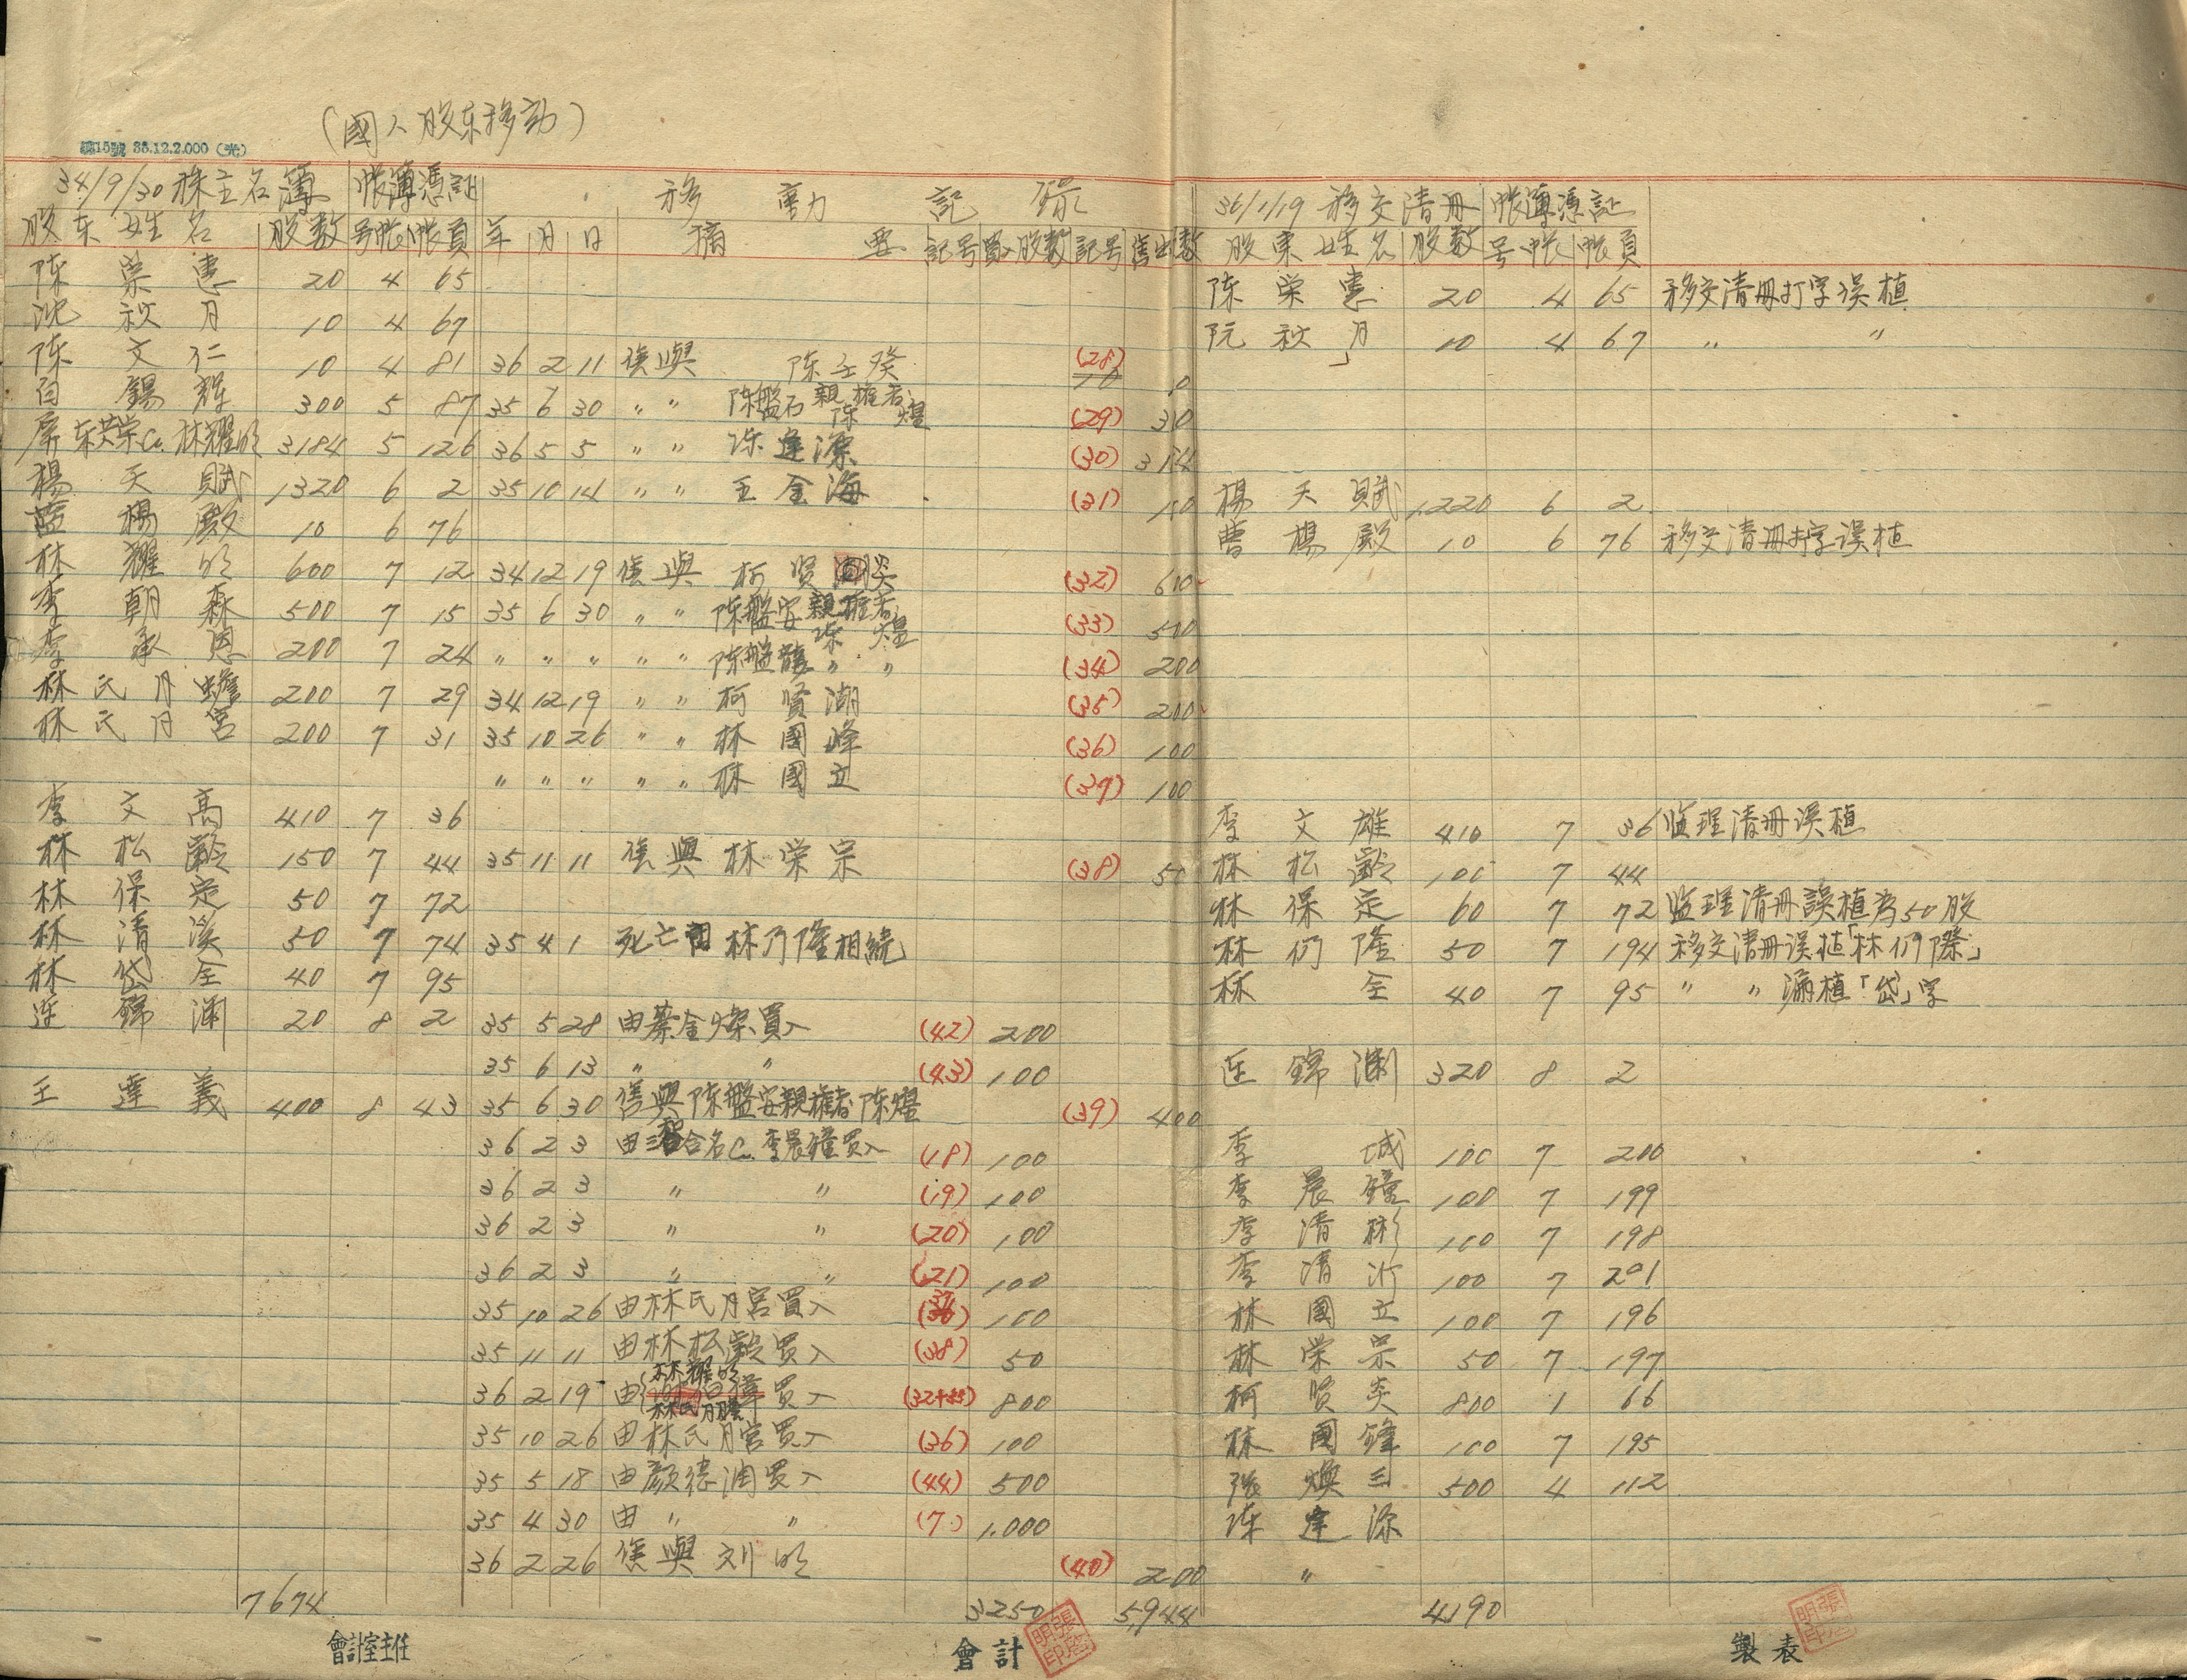 (國人股东移動)
35.12.2.000 (光)
34/9/30 株主名簿 帳簿憑証 移動記錄 36/1/19 移交清册 帳簿憑証
股东姓名 股數 号帳 帳頁 年 月 日 摘要 記号 買入股數 記号 售出數 股東姓名 股數 号帳 帳頁
陈荣惠 20 4 65 陈荣惠 20 4 65 移交清册打字误植
沈秋月 10 4 67 阮秋月 10 4 67 〃 〃
陈文仁 10 4 81 36 2 11 售與 陈壬癸 (28) 10
白錫輝 300 5 87 35 6 30 〃 〃 陈盤石 親權者 陈煌 (29) 300
屏东共荣Co. 林耀明 3184 5 126 36 5 5 〃 〃 陈逢源 (30) 3184
楊天賦 1320 6 2 35 10 14 〃 〃 王金海 (31) 100 楊天賦 1,220 6 2
藍楊殿 10 6 76 曹楊殿 10 6 76 移交清册打字误植
林耀明 600 7 12 34 12 19 售與 柯賢炎 (32) 600
李朝森 500 7 15 35 6 30 〃 〃 陈盤安 親權者 陈煌 (33) 500
李承恩 200 7 24 〃 〃 〃 〃 〃 陈盤龍 〃 〃 (34) 200
林氏月蟾 200 7 29 34 12 19 〃 〃 柯賢湖 (35) 200
林氏月宮 200 7 31 35 10 26 〃 〃 林國峰 (36) 100
〃 〃 〃 〃 〃 林國立 (37) 100
李文高 410 7 36 李文雄 410 7 36 监理清册误植
林松齡 150 7 44 35 11 11 售與 林荣宗 (38) 50 林松齡 100 7 44
林保定 50 7 72 林保定 60 7 72 监理清册誤植為50股
林清溪 50 7 74 35 4 1 死亡由林乃隆相続 林仍隆 50 7 194 移交清册误植「林仍際」
林岱全 40 7 95 林全 40 7 95 〃 〃 漏植「岱」字
连錦渊 20 8 2 35 5 28 由蔡金燦買入 (42) 200
35 6 13 〃 〃 (43) 100 连錦渊 320 8 2
王達義 400 8 43 35 6 30 售與陈盤安親權者陈煌 (39) 400
36 2 3 由三 合名Co. 李晨鐘買入 (18) 100 李城 100 7 200
36 2 3 〃 〃 (19) 100 李晨鐘 100 7 199
36 2 3 〃 〃 (20) 100 李清彬 100 7 198
36 2 3 〃 〃 (21) 100 李清 100 7 201
35 10 26 由林氏月宮買入 (37) 100 林國立 100 7 196
35 11 11 由林松齡買入 (38) 50 林荣宗 50 7 197
36 2 19 由 林耀明 林氏月蟾 買入 (32+35) 800 柯賢炎 800 1 66
35 10 26 由林氏月宮買入 (36) 100 林國鋒 100 7 195
35 5 18 由顏德润買入 (44) 500 張煥三 500 4 112
35 4 30 由 〃 〃 (7) 1,000 陈逢源
36 2 26 售與 刘明 (40) 200 〃
7674 3250 5,944 4,190
會計室主任 會計 製表